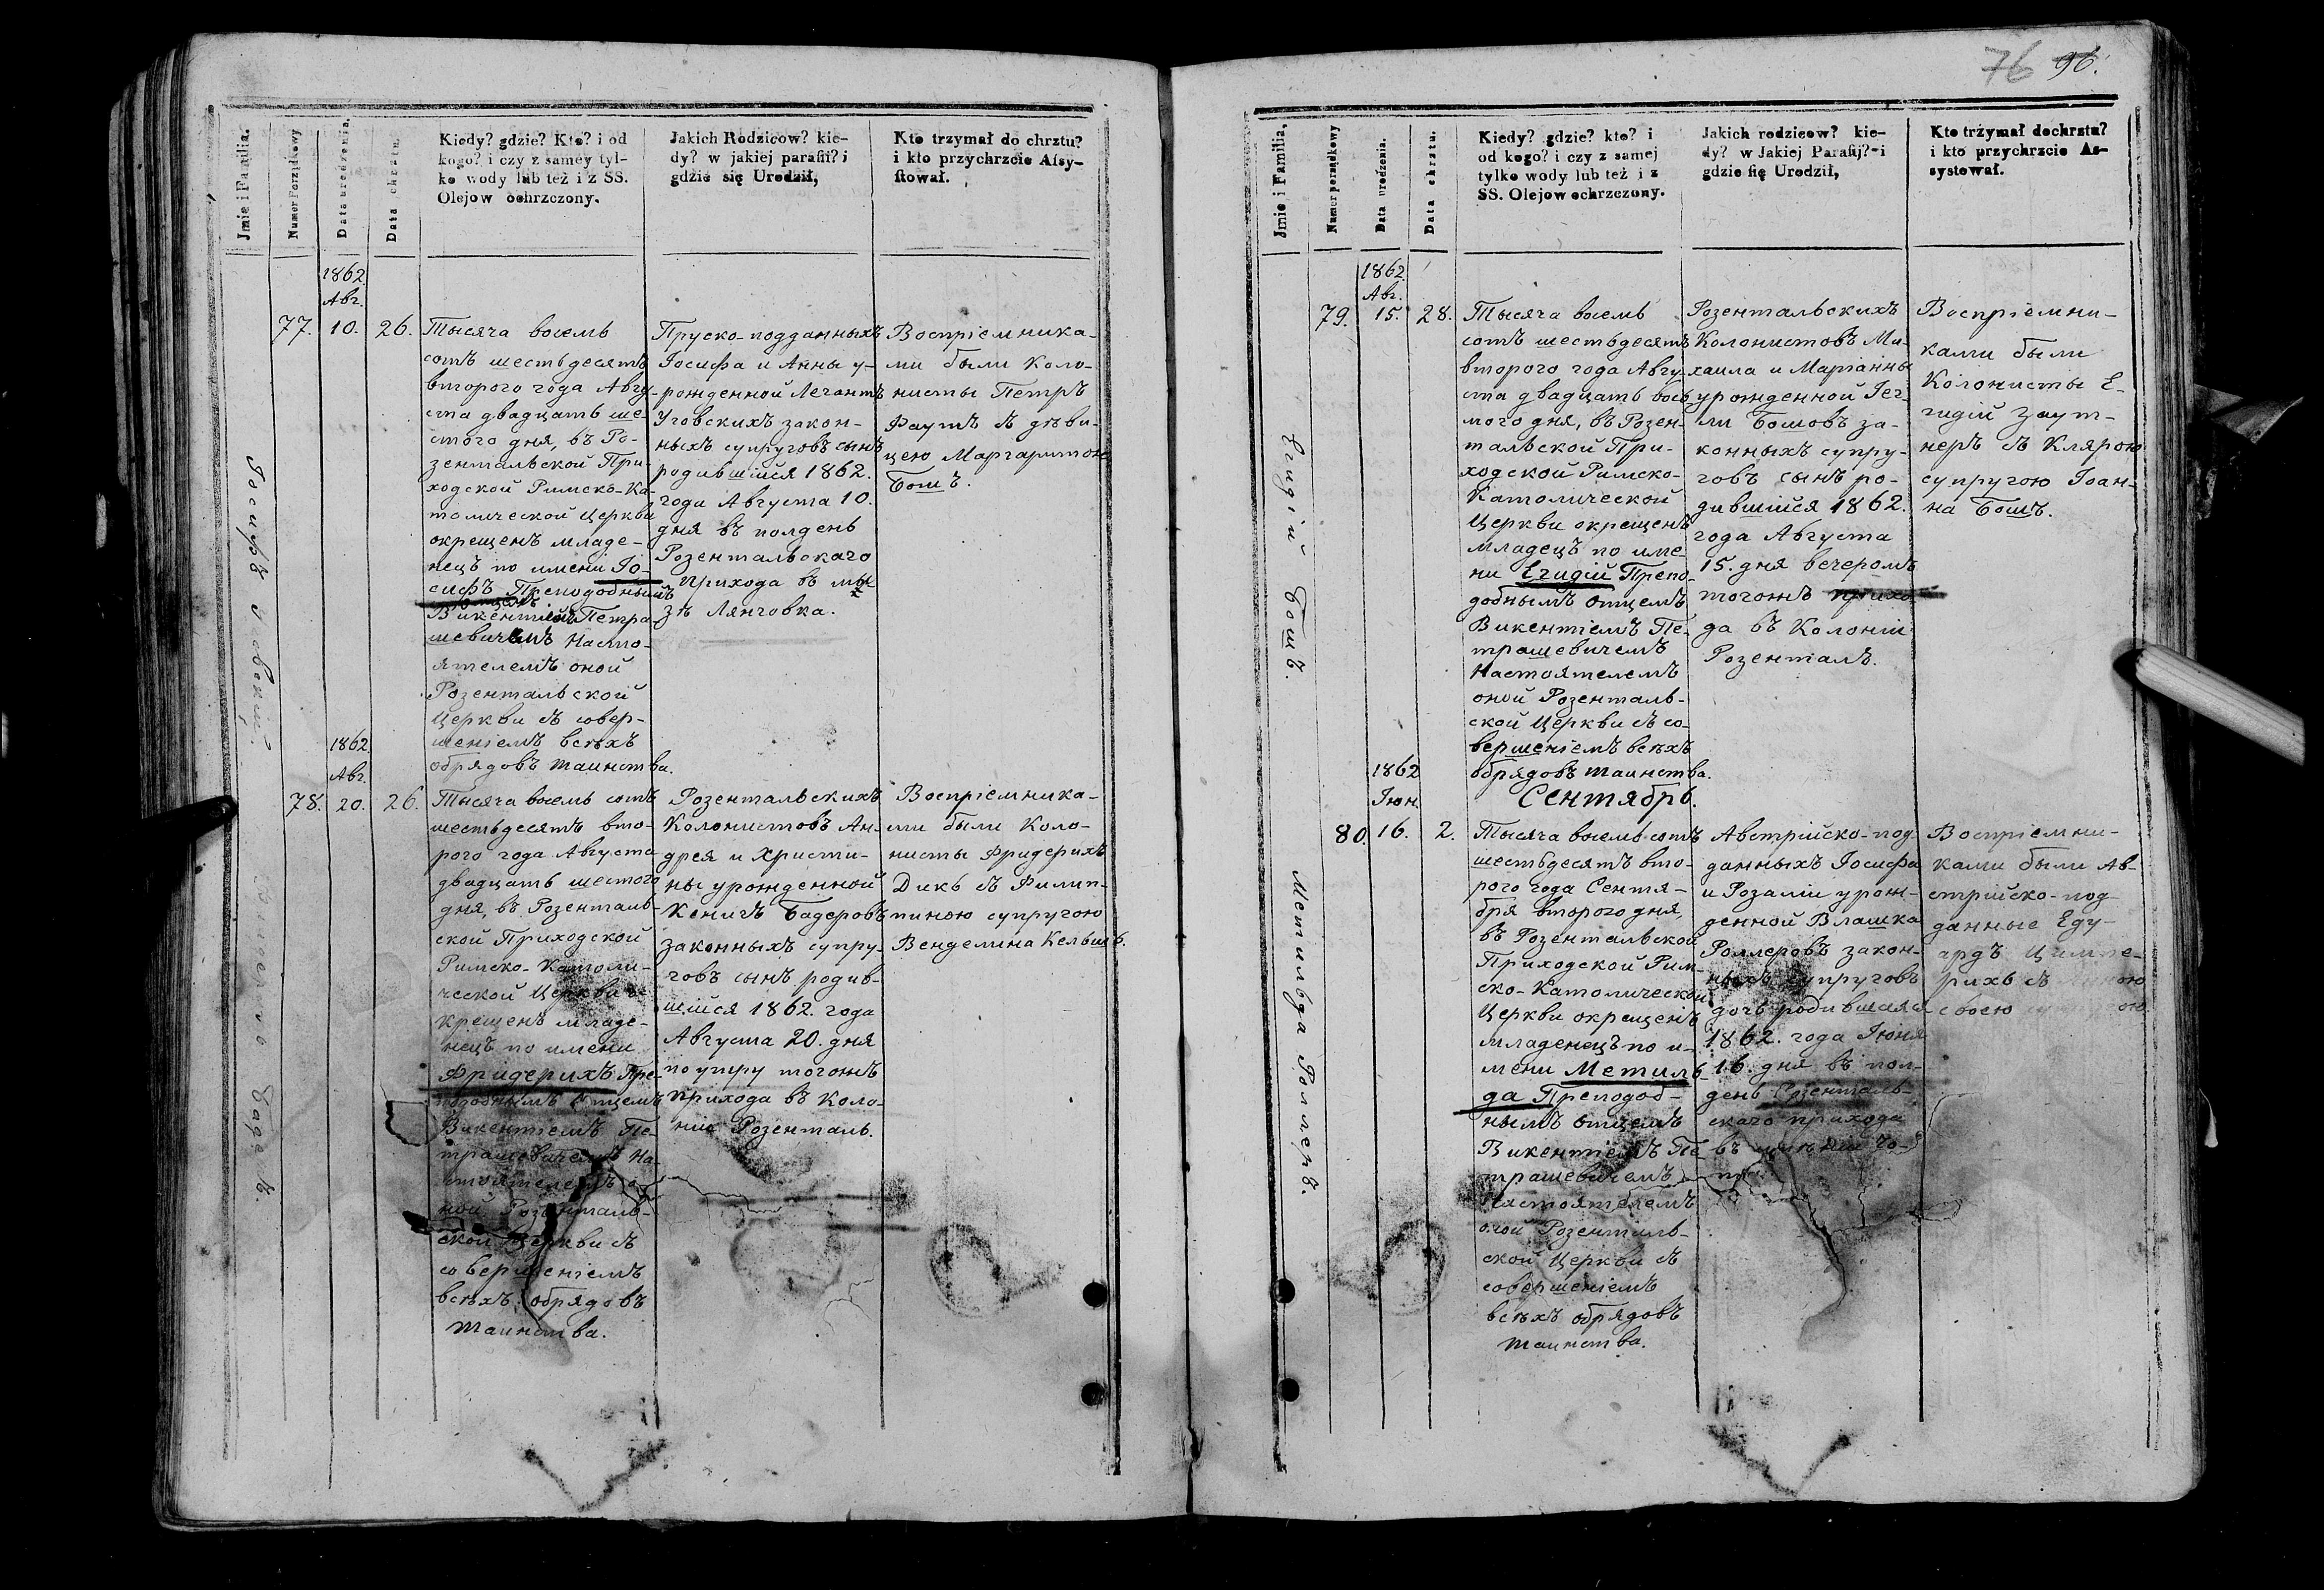 76 96.
Jmie i Familia.
Numer Porządkowy
Data urodzenia.
Data chrztu.
Kiedy? gdzie? Kto? i od
kogo? i czy z samey tyl-
ko wody lub też i z SS.
Olejow ochrzczony.
Jakich Rodzicow? kie-
dy? w jakiej parafii? i
gdzie się Urodził,
Kto trzymał do chrztu?
i kto przychrzcie Assy-
stował.
1862
Авг.
77. 10. 26.
Тысяча восемь
сотъ шестьдесятъ
втораго года Авгу-
ста двадцать ше-
стого дня, въ Ро-
зентальской При-
ходской Римско-Ка-
толической Церкви
окрещенъ младе-
нецъ по имени Іо-
сифъ Преподобнымъ
отцемъ
Викентіемъ Петра-
шевичемъ Насто-
ятелемъ оной
Розентальской
Церкви съ совер-
шеніемъ всѣхъ
обрядовъ таинства.
Пруско-подданныхъ
Іосифа и Анны у-
рожденной Легантъ
Уговскихъ закон-
ныхъ супруговъ сынъ
родившійся 1862.
года Августа 10.
дня въ полдень
Розентальскаго
прихода въ мы
зѣ Лянговка.
Воспріемника-
ми были Коло-
нисты Петръ
Фаутъ съ дѣви-
цею Маргаритою
Бошъ.
1862
Авг.
78. 20. 26.
Тысяча восемь сотъ
шестьдесятъ вто-
рого года Августа
двадцать шестого
дня, въ Розенталь-
ской Приходской
Римско-Католи-
ческой Церкви
крещенъ младе-
нецъ по имени
Фридерихъ Пре-
подобнымъ Отцемъ
Викентіемъ Пе-
трашевичемъ На-
стоятелемъ о-
ной Розенталь-
ской Церкви съ
совершеніемъ
всѣхъ обрядовъ
Таинства.
Розентальскихъ
Колонистовъ Ан-
дрея и Христи-
ны урожденной
Кенигъ Бадеровъ
законныхъ супру-
говъ сынъ родив-
шійся 1862. года
Августа 20. дня
по утру тогожъ
прихода въ Коло-
ніи Розенталь.
Воспріемника-
ми были Коло-
нисты Фридерихъ
Дикъ съ Филип-
пиною супругою
Венделина Кельшъ.
Jmie i Familia,
Numer porządkowy
Data urodzenia.
Data chrztu.
Kiedy? gdzie? kto? i
od kogo? i czy z samej
tylko wody lub też i z
SS. Olejow ochrzczony.
Jakich rodzicow? kie-
dy? w Jakiej Parafij? i
gdzie się Urodził,
Kto trżymał dochrztu?
i kto przychrzcie As-
systował.
Егидій Бошъ.
1862
Авг.
79. 15. 28.
Тысяча восемь
сотъ шестьдесятъ
второго года Авгу-
ста двадцать вось
мого дня, въ Розен-
тальской При-
ходской Римско-
Католической
Церкви окрещенъ
младецъ по име-
ни Егидій Препо-
добнымъ Отцемъ
Викентіемъ Пе-
трашевичемъ
Настоятелемъ
оной Розенталь-
ской Церкви съ со-
вершеніемъ всѣхъ
обрядовъ таинства.
Розентальскихъ
Колонистовъ Ми-
хаила и Маріанны
урожденной Гег-
ли Бошовъ за-
конныхъ супру-
говъ сынъ ро-
дившійся 1862.
года Августа
15. дня вечеромъ
тогожъ прихо
да въ Колоніи
Розенталъ.
Воспріемни-
ками были
Колонисты Е-
гидій Заут-
неръ съ Клярою
супругою Іоан-
на Бошъ.
Сентябрь.
Метильда Роллеръ.
1862
Іюн.
80. 16. 2.
Тысяча восемь сотъ
шестьдесятъ вто-
рого года Сентя-
бря второго дня,
въ Розентальской
Приходской Рим-
ско-Католической
Церкви окрещенъ
младенецъ по и-
мени Метиль-
да Преподоб-
нымъ отцемъ
Викентіемъ Пе-
трашевичемъ
Настоятелемъ
оной Розенталь-
ской Церкви съ
совершеніемъ
всѣхъ обрядовъ
таинства.
Австрійско-под-
данныхъ Іосифа
и Розаліи урож-
денной Влашка
Роллеровъ закон-
ныхъ супруговъ
дочь родившаяся
1862. года Іюня
16. дня въ пол-
день Розенталь-
скаго прихода
Воспріемни-
ками были Ав-
стрійско-под-
данные Еду-
ардъ
рихъ съ
своею